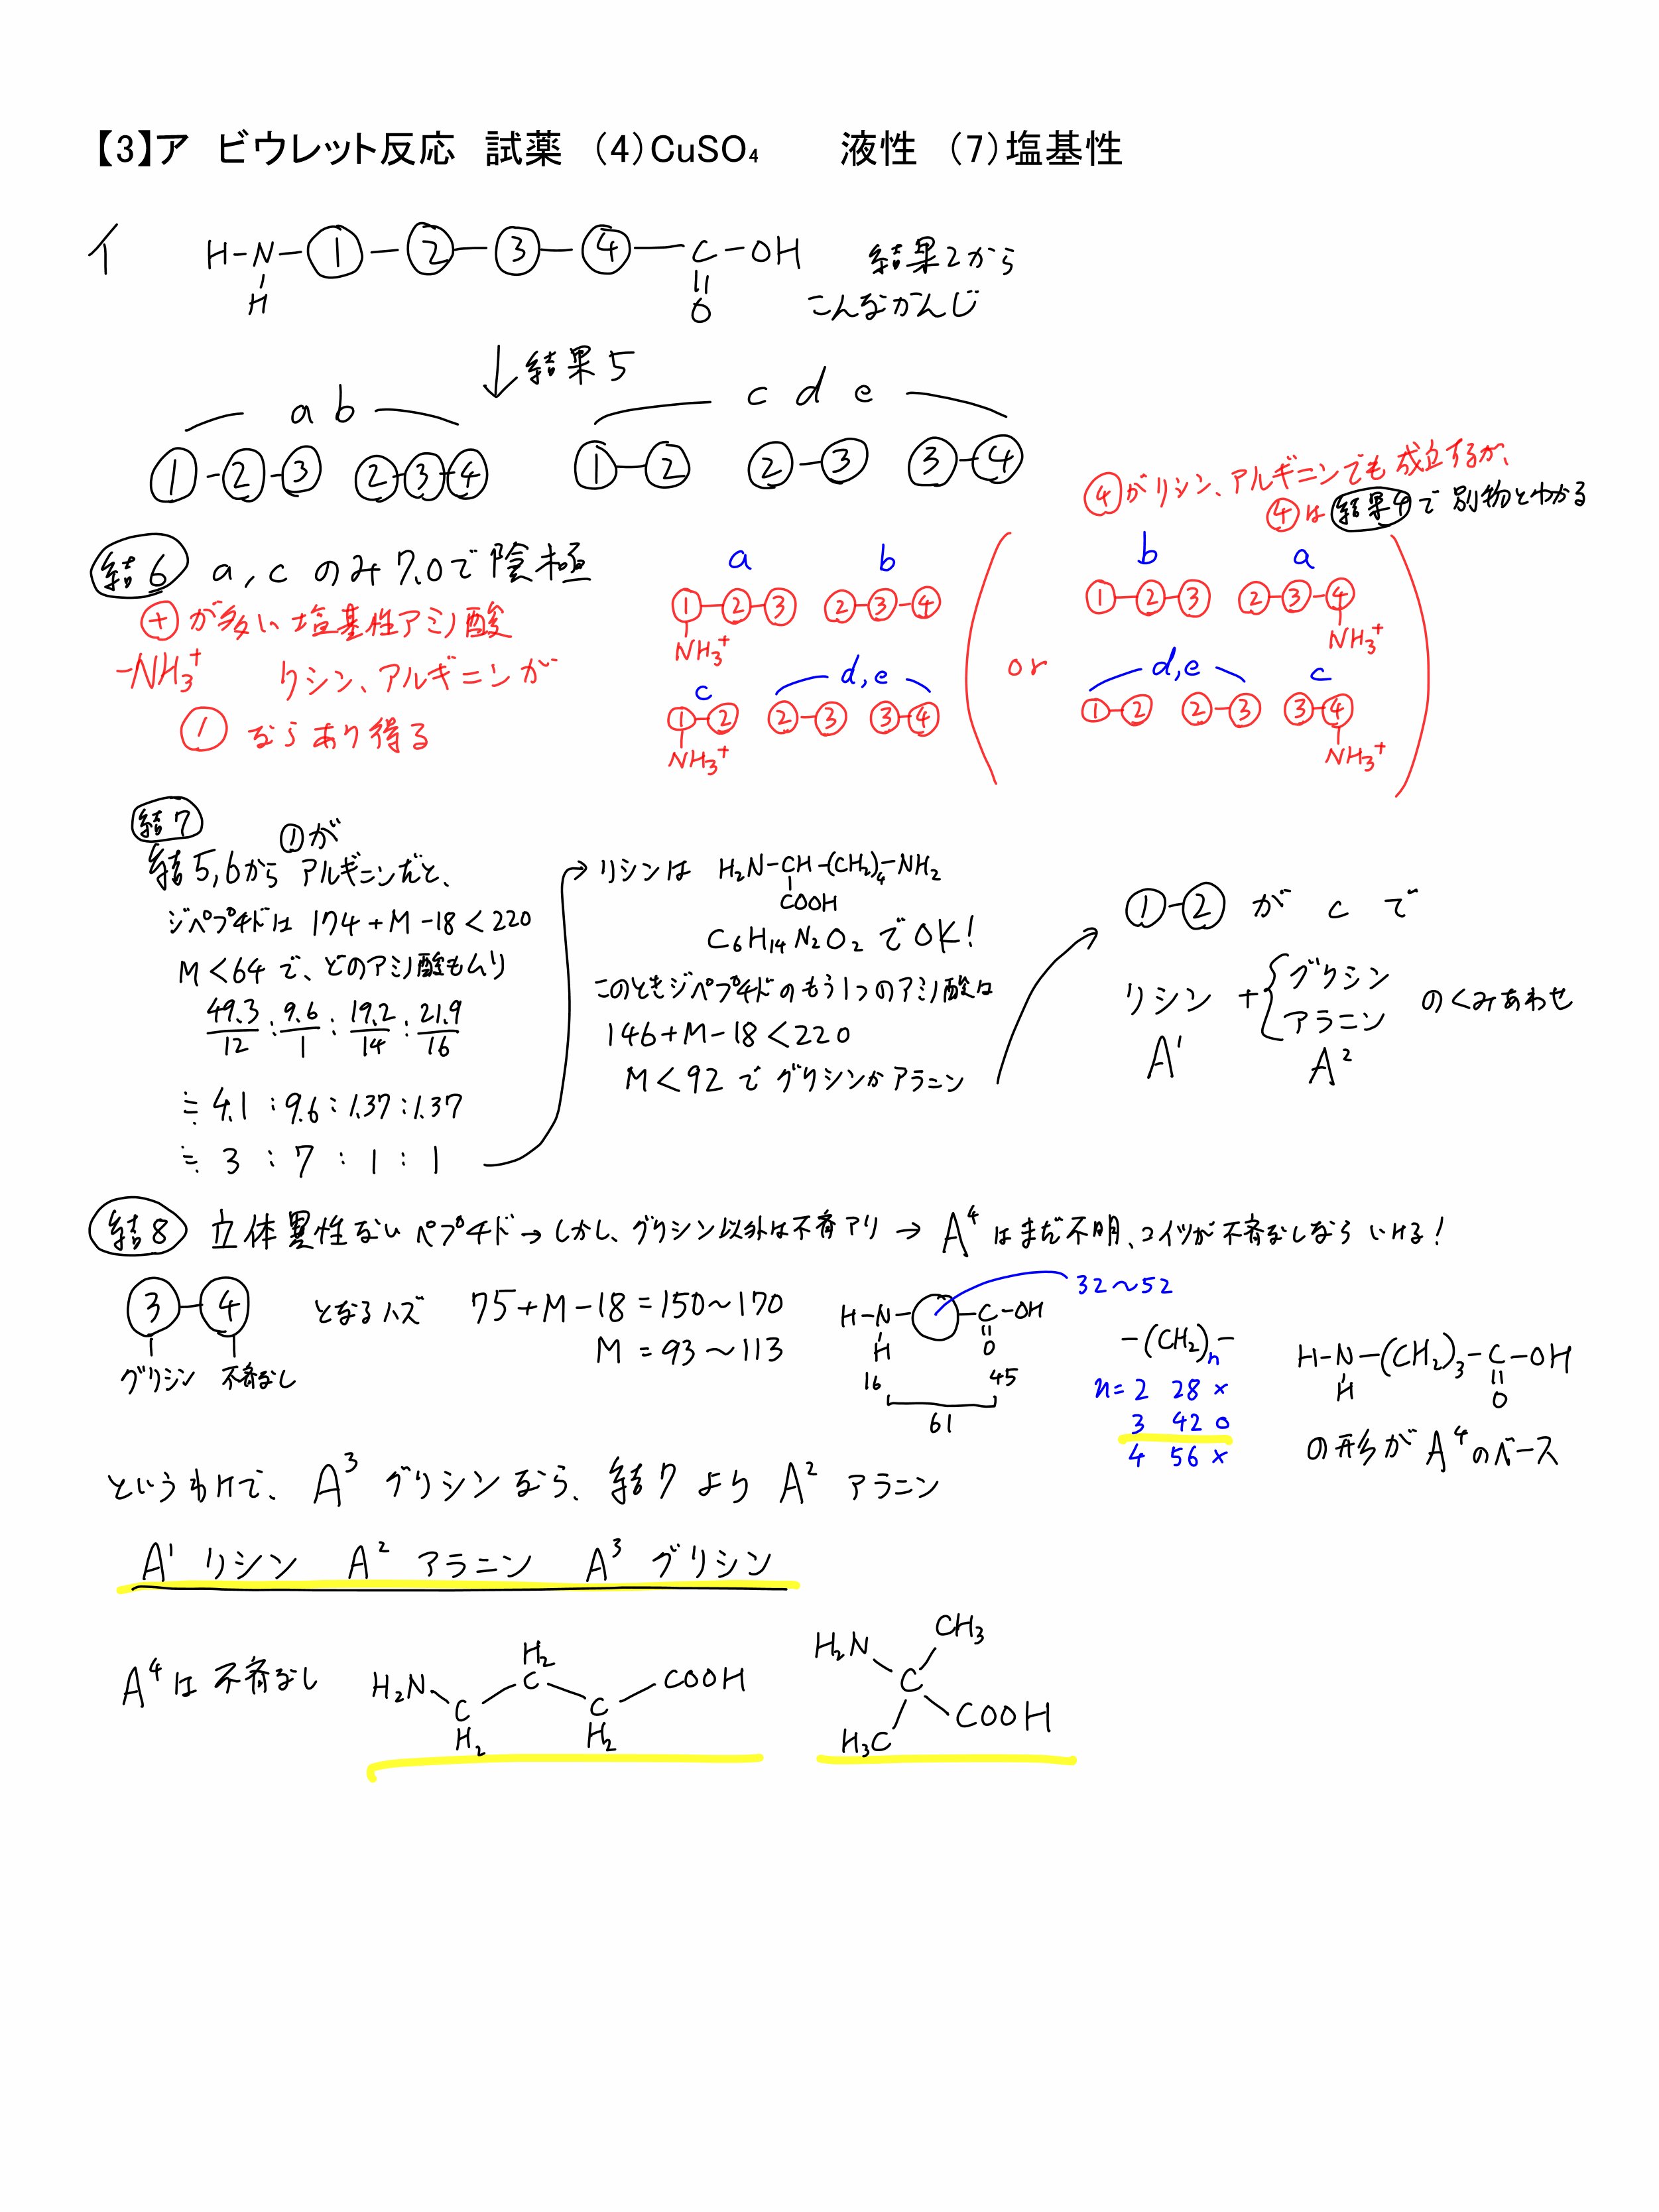 【3】ア ビウレット反応 試薬 (4)CuSO₄ 液性 (7)塩基性
イ H-N-①-②-③-④-C-OH 結果2から
H O こんなかんじ
↓結果5
a b c d e
①-②-③ ②-③-④ ①-② ②-③ ③-④
④がリシン、アルギニンでも成立するが、
④は結果4で別物とわかる
結6 a,cのみ7.0で陰極
⊕が多い塩基性アミノ酸
-NH₃⁺ リシン、アルギニンが
①ならあり得る
a b
①-②-③ ②-③-④
NH₃⁺
c d,e
①-② ②-③ ③-④
NH₃⁺
or
b a
①-②-③ ②-③-④
NH₃⁺
d,e c
①-② ②-③ ③-④
NH₃⁺
結7
結5,6から ①がアルギニンだと、
ジペプチドは 174+M-18<220
M<64で、どのアミノ酸もムリ
49.3/12 : 9.6/1 : 19.2/14 : 21.9/16
≒ 4.1 : 9.6 : 1.37 : 1.37
≒ 3 : 7 : 1 : 1
→リシンは H₂N-CH-(CH₂)₄-NH₂
COOH
C₆H₁₄N₂O₂でOK!
このときジペプチドのもう1つのアミノ酸は
146+M-18<220
M<92でグリシンかアラニン
①-②がcで
リシン+{グリシン アラニン のくみあわせ
A¹ A²
結8 立体異性ないペプチド→しかし、グリシン以外は不斉アリ→A⁴はまだ不明、コイツが不斉なしならいける!
③-④ となるハズ 75+M-18=150~170
グリシン 不斉なし M=93~113
H-N-○-C-OH 32~52
H O
16 45
61
-(CH₂)n-
n=2 28 ×
3 42 ○
4 56 ×
H-N-(CH₂)₃-C-OH
H O
の形がA⁴のベース
というわけで、A³グリシンなら、結7よりA²アラニン
A¹ リシン A² アラニン A³ グリシン
A⁴は不斉なし
H₂N C H₂ H₂ C C H₂ COOH
H₂N CH₃ C H₃C COOH